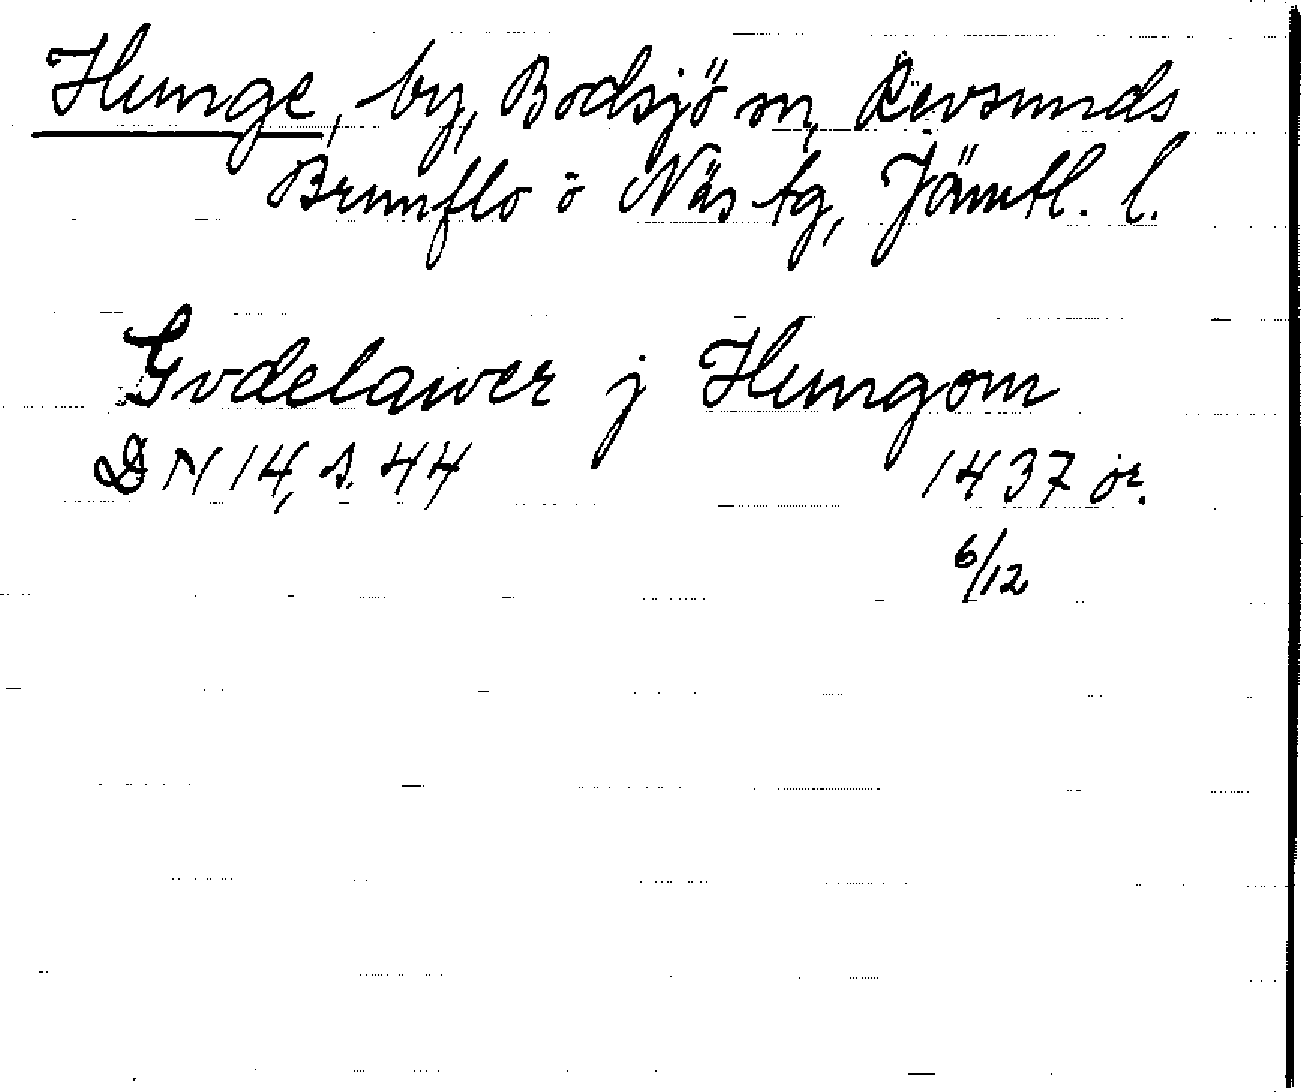 Hunge, by, Bodsjö sn, Revsunds
Brunflo o Näs tg, Jämtl. l.
Gvdelawer j Hungom
DN 14, s. 44 1437 or.
6/12